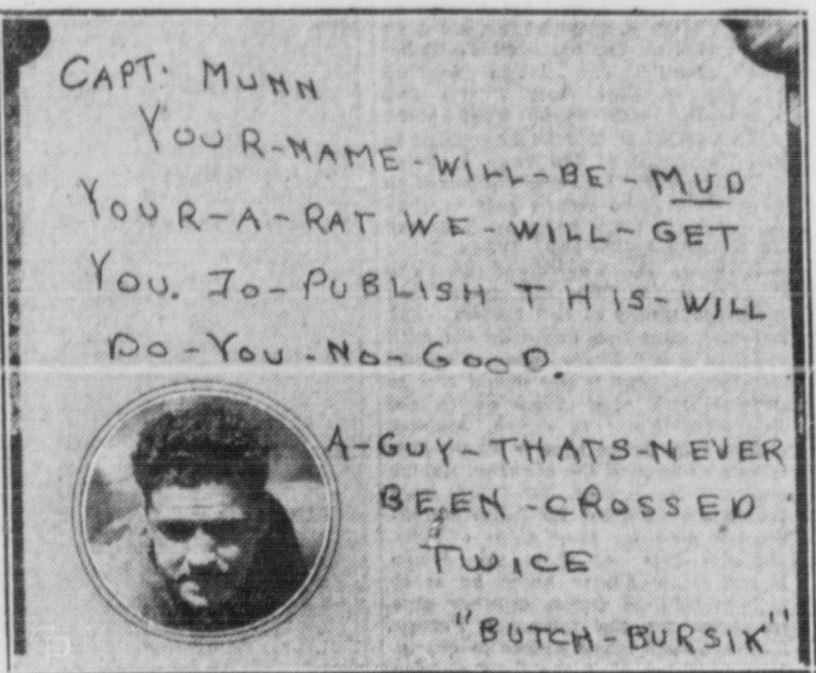 CAPT. MUNN
YOUR-NAME-WILL-BE-MUD
YOUR-A-RAT WE-WILL-GET
YOU. TO-PUBLISH THIS-WILL
DO-YOU-NO-GOOD.
A-GUY-THATS-NEVER
BEEN-CROSSED
TWICE
"BUTCH-BURSIK"